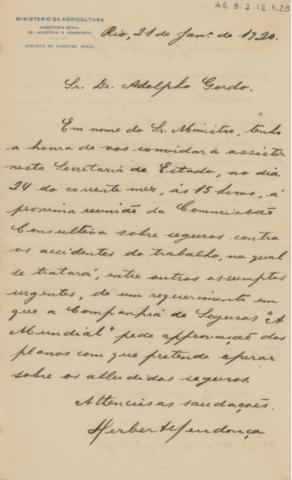 AG 3.2.12.1.23
MINISTERIO DA AGRICULTURA
DIRECTORIA GERAL
DE INDUSTRIA E COMMERCIO
GABINETE DO DIRECTOR GERAL
Rio, 21 de Jan.º de 1920.
Sr. Dr. Adolpho Gordo.
Em nome do Sr. Ministro, tenho
a honra de vos convidar a assistir
nesta Secretaria de Estado, no dia
24 do corrente mez, ás 15 horas, á
proxima reunião da Commissão
Consultiva sobre seguros contra
os accidentes do trabalho, na qual
se tratará, entre outros assumptos
urgentes, de um requerimento em
que a Companhia de Seguros "A
Mundial" pede approvação dos
planos com que pretende operar
sobre os alludidos seguros.
Attenciosas saudações.
Herbert Mendonça